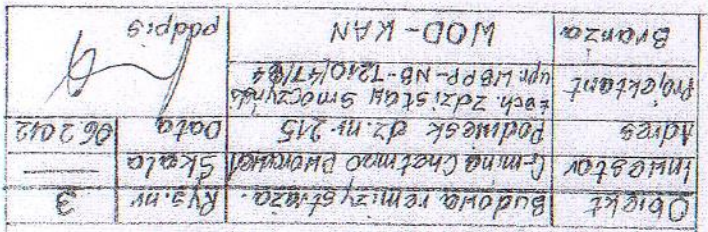 Obiekt Budowa remizy straża. Rys.nr 3
Inwestor Gmina Chełmno Skala —
Adres Podwiesk dz.nr. 215 Data 06.2012
Projektant tech. Zdzisław Smoczyński
upr. WBPP-NB-7210/47/84
Branża WOD-KAN podpis